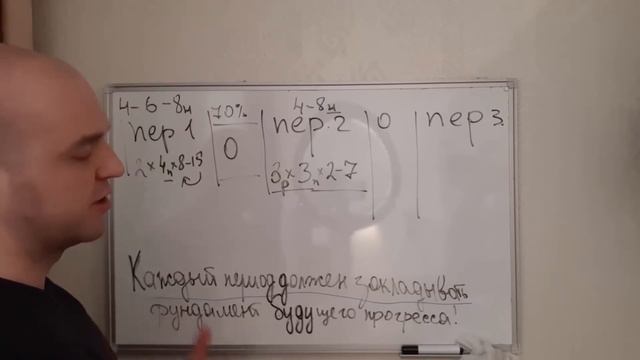 4-6-8н 70% 4-8н
пер 1 0 пер. 2 0 пер 3.
2×4п×8-15 3р×3п×2-7
Каждый период должен закладывать
фундамент будущего прогресса!